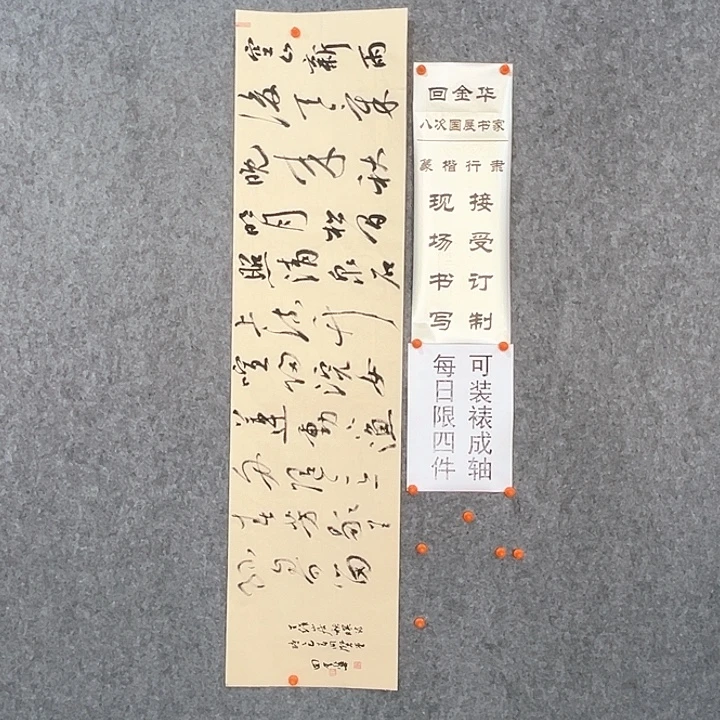 空山新雨
後天氣
晚来秋
明月松间
照清泉石
上流竹
喧归浣女
蓮動下漁
舟随意
春芳歇王
孙自可留
王维山居秋暝
回金華
回金华
八次国展书家
篆楷行隶
接受订制
现场书写
可装裱成轴
每日限四件